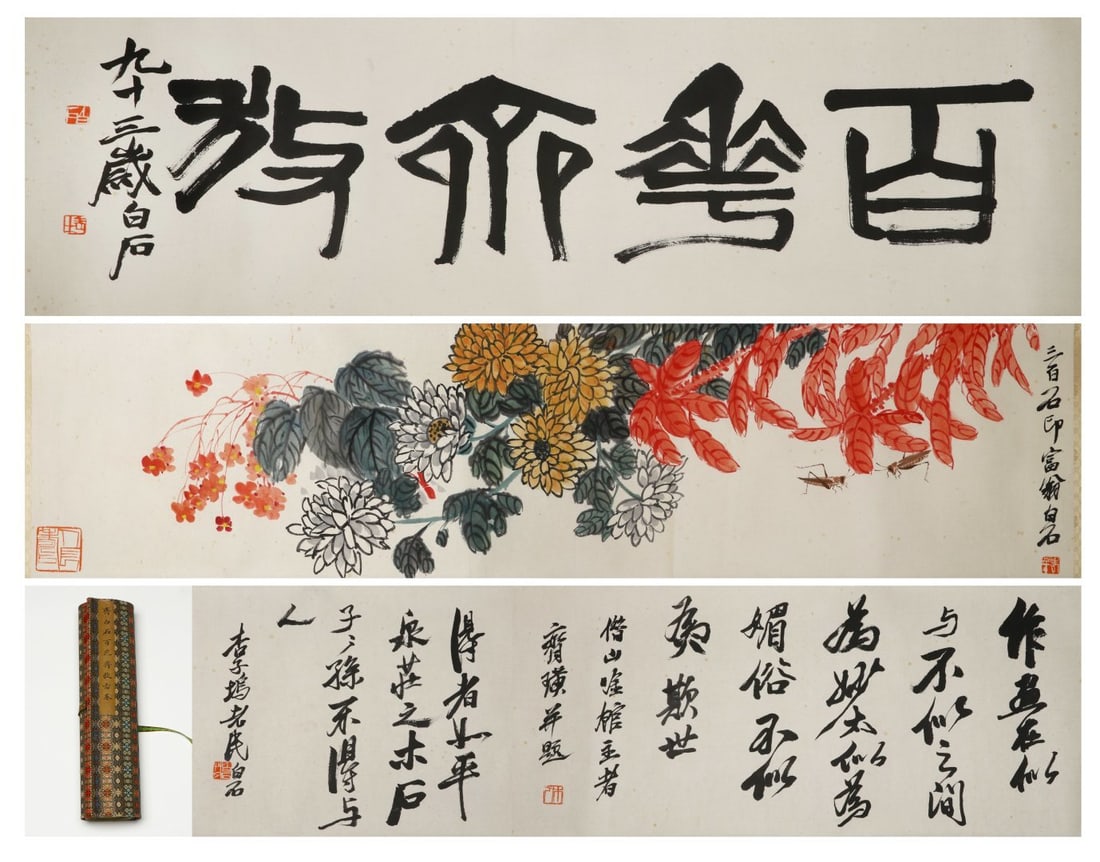 百花齐放
九十三歲白石
三百石印富翁白石
作畫在似
与不似之間
為妙太似為
媚俗不似
為欺世
借山唫館主者
齊璜并題
得者如平
泉莊之木石
子〻孫不得与
人
杏子塢老民白石